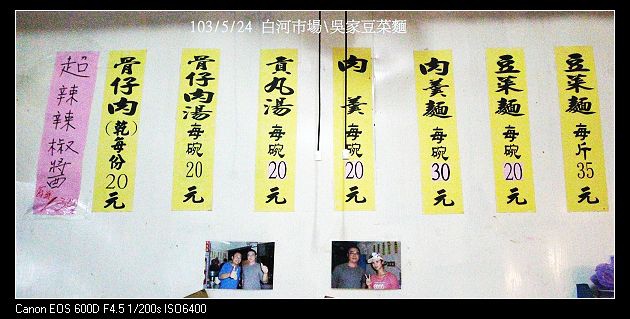 103/5/24 白河市場\吳家豆菜麵
豆菜麵每斤35元
豆菜麵每碗20元
肉羹麵每碗30元
肉羹每碗20元
貢丸湯每碗20元
骨仔肉湯每碗20元
骨仔肉(乾)每份20元
超辣辣椒醬
Canon EOS 600D F4.5 1/200s ISO6400